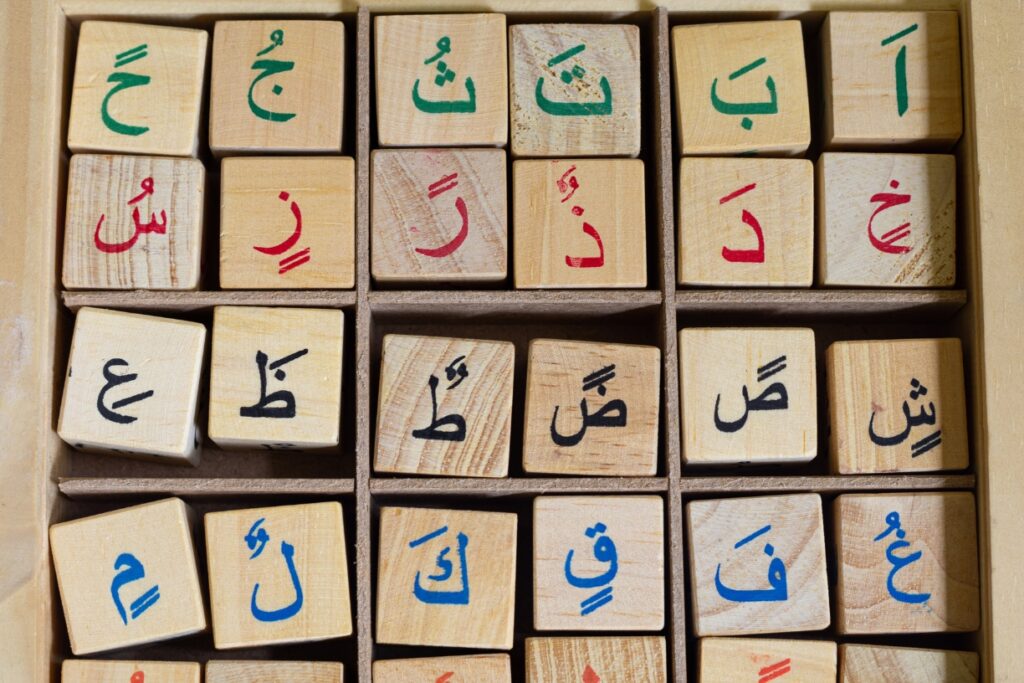 اَ بَ تَ ثُ جُ حً
خٍ دَ ذٌ رً زٍ سُ
شٍ صً ضً طٌ ظَ عِ
غُ فَ قٍ كَ لٌ مٍ